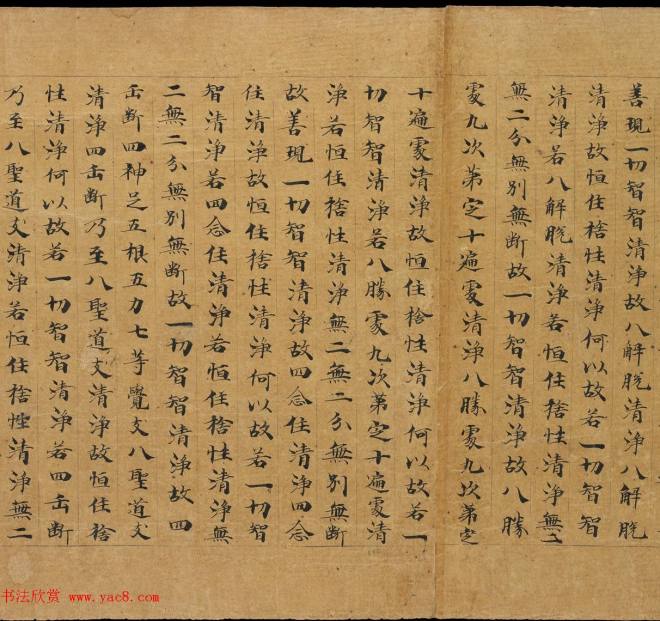 善現一切智智清淨故八解脫清淨八解脫
清淨故恒住捨性清淨何以故若一切智智
清淨若八解脫清淨若恒住捨性清淨無二
無二分無別無斷故一切智智清淨故八勝
處九次第定十遍處清淨八勝處九次第定
十遍處清淨故恒住捨性清淨何以故若一
切智智清淨若八勝處九次第定十遍處清
淨若恒住捨性清淨無二無二分無別無斷
故善現一切智智清淨故四念住清淨四念
住清淨故恒住捨性清淨何以故若一切智
智清淨若四念住清淨若恒住捨性清淨無
二無二分無別無斷故一切智智清淨故四
正斷四神足五根五力七等覺支八聖道支
清淨四正斷乃至八聖道支清淨故恒住捨
性清淨何以故若一切智智清淨若四正斷
乃至八聖道支清淨若恒住捨性清淨無二
书法欣赏 www.yac8.com